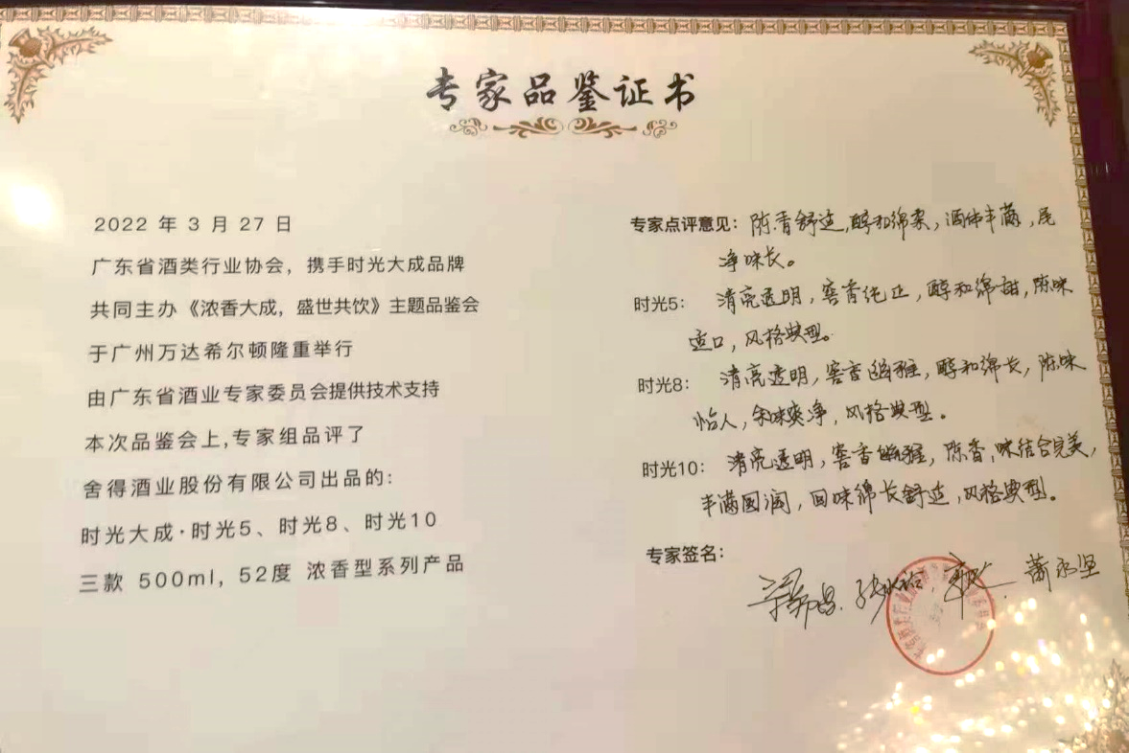 专家品鉴证书
2022 年 3 月 27 日
广东省酒类行业协会，携手时光大成品牌
共同主办《浓香大成，盛世共饮》主题品鉴会
于广州万达希尔顿隆重举行
由广东省酒业专家委员会提供技术支持
本次品鉴会上,专家组品评了
舍得酒业股份有限公司出品的:
时光大成·时光5、时光8、时光10
三款 500ml，52度 浓香型系列产品
专家点评意见：陈香舒适,醇和绵柔，酒体丰满，尾
净味长。
时光5：清亮透明，窖香纯正，醇和绵甜，陈味
适口，风格典型。
时光8：清亮透明，窖香幽雅，醇和绵长，陈味
怡人，余味爽净，风格典型。
时光10：清亮透明，窖香幽雅，陈香,味结合完美，
丰满圆润，回味绵长舒适，风格典型。
专家签名：